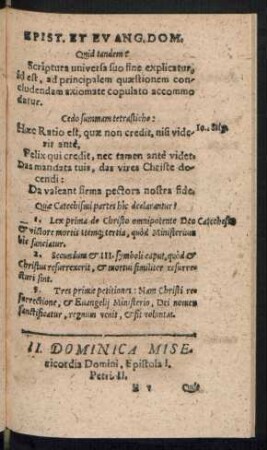 EPIST. ET EVANG. DOM.
Quid tandem?
Scriptura universa suo fine explicatur,
id est, ad principalem quæstionem con-
cludendam axiomate copulato accommo
datur.
Cedo summam tetrasticho:
Hæc Ratio est, quæ non credit, nisi vide-
rit antè,
Felix qui credit, nec tamen antè videt.
Das mandata tuis, das vires Christe do-
cendi:
Da valeant firma pectora nostra fide.
Quæ Catechismi partes hîc declarantur?
1. Lex prima de Christo omnipotente Deo
& victore mortis itemq; tertia, quòd Ministerium
hîc sanciatur.
2. Secundum & III. symboli caput, quòd &
Christus resurrexerit, & mortui similiter resurre-
cturi sint.
3. Tres primæ petitiones: Nam Christi re-
surrectione, & Euangelij Ministerio, Dei nomen
sanctificatur, regnum venit, & fit voluntas.
Catechesis
II. DOMINICA MISE-
ricordia Domini, Epistola I.
Petri. II.